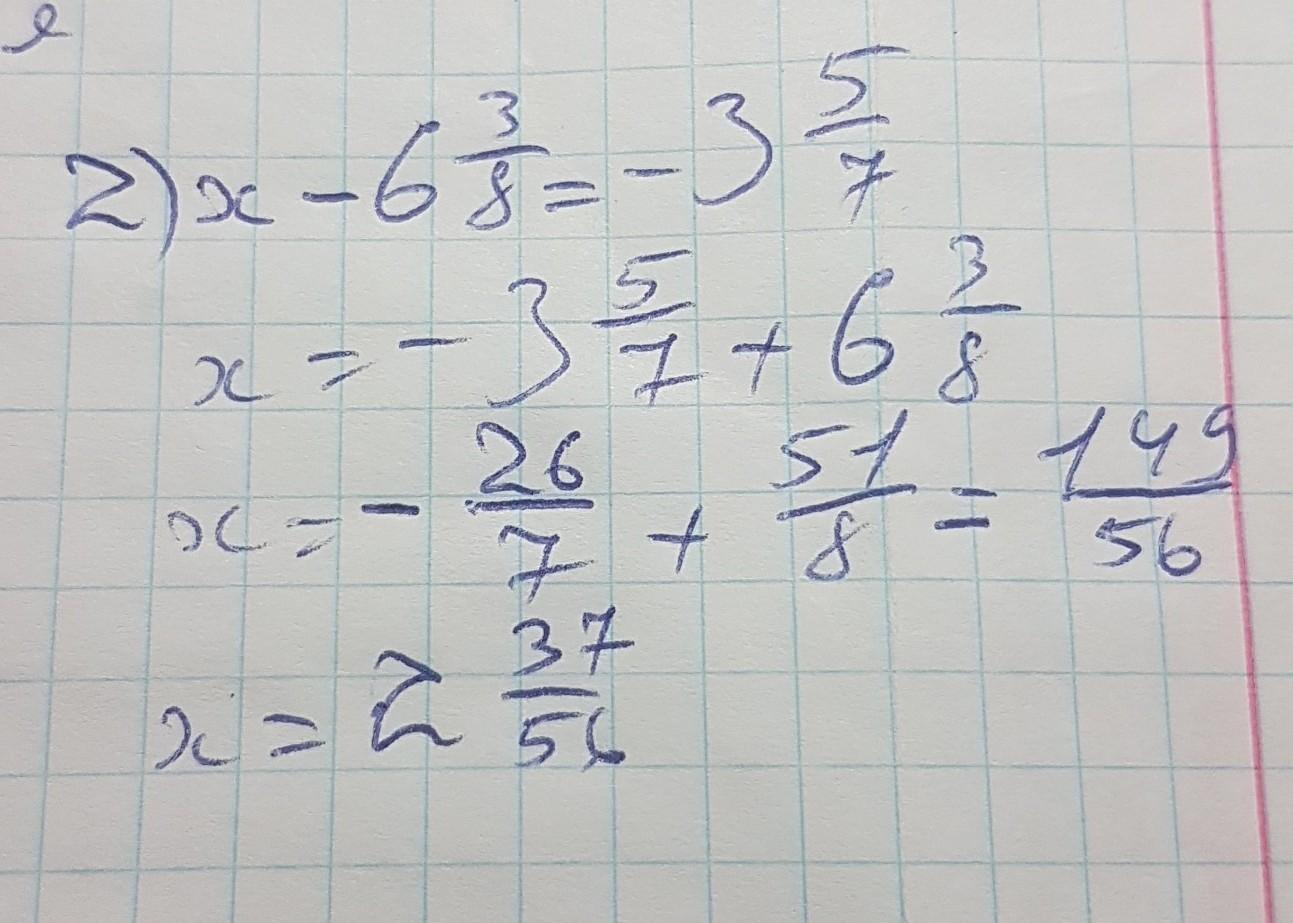 2) x - 6 3/8 = - 3 5/7
x = - 3 5/7 + 6 3/8
x = - 26/7 + 51/8 = 149/56
x = 2 37/56